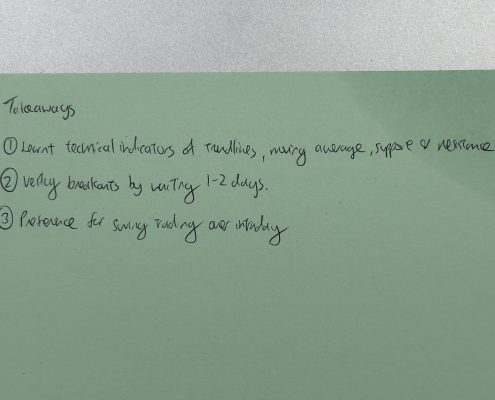 Takeaways
① Learnt technical indicators of Trendlines, moving average, suppore & resistance
② Verify breakouts by waiting 1-2 days.
③ Preference for swing trading over intraday